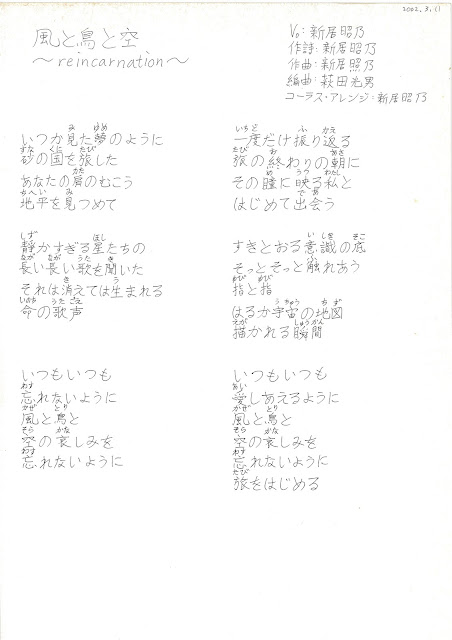 2002.3.11
風と鳥と空
～reincarnation～
Vo:新居昭乃
作詩:新居昭乃
作曲:新居昭乃
編曲:萩田光男
コーラス・アレンジ:新居昭乃
いつか見た夢のように
砂の国を旅した
あなたの肩のむこう
地平を見つめて
静かすぎる星たちの
長い長い歌を聞いた
それは消えては生まれる
命の歌声
いつもいつも
忘れないように
風と鳥と
空の哀しみを
忘れないように
一度だけ振り返る
旅の終わりの朝に
その瞳に映る私と
はじめて出会う
すきとおる意識の底
そっとそっと触れあう
指と指
はるか宇宙の地図
描かれる瞬間
いつもいつも
愛しあえるように
風と鳥と
空の哀しみを
忘れないように
旅をはじめる